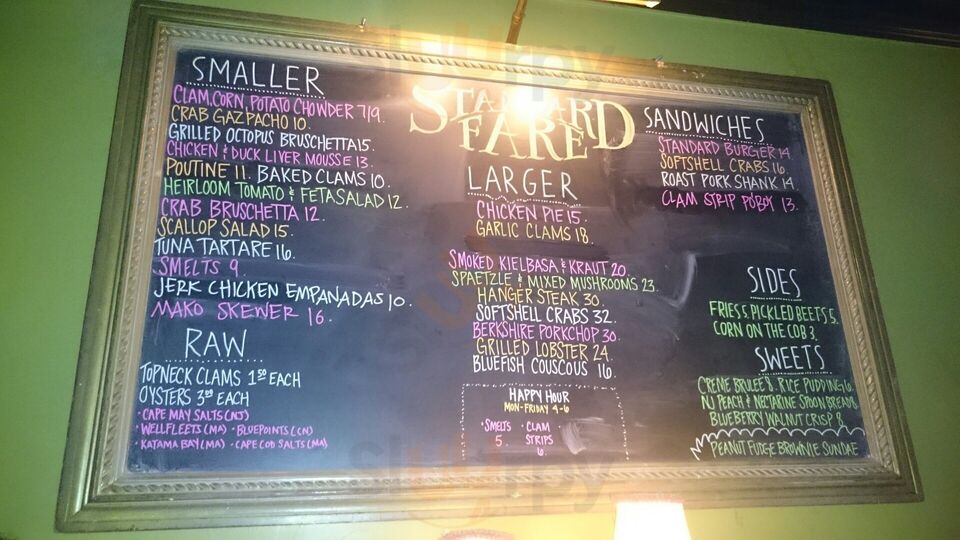 SMALLER
CLAM, CORN, POTATO CHOWDER 7/9.
CRAB GAZPACHO 10.
GRILLED OCTOPUS BRUSCHETTA 15.
CHICKEN & DUCK LIVER MOUSSE 13.
POUTINE 11. BAKED CLAMS 10.
HEIRLOOM TOMATO & FETA SALAD 12.
CRAB BRUSCHETTA 12.
SCALLOP SALAD 15.
TUNA TARTARE 16.
SMELTS 9.
JERK CHICKEN EMPANADAS 10.
MAKO SKEWER 16.
RAW
TOPNECK CLAMS 1 50 EACH
OYSTERS 3 00 EACH
· CAPE MAY SALTS (NJ)
· WELLFLEETS (MA) · BLUEPOINTS (CN)
· KATAMA BAY (MA) · CAPE COD SALTS (MA)
STANDARD
FARE
LARGER
CHICKEN PIE 15.
GARLIC CLAMS 18.
SMOKED KIELBASA & KRAUT 20.
SPAETZLE & MIXED MUSHROOMS 23.
HANGER STEAK 30.
SOFTSHELL CRABS 32.
BERKSHIRE PORKCHOP 30.
GRILLED LOBSTER 24.
BLUEFISH COUSCOUS 16.
HAPPY HOUR
MON-FRIDAY 4-6
· SMELTS 5.
· CLAM STRIPS 6.
SANDWICHES
STANDARD BURGER 14.
SOFTSHELL CRABS 16.
ROAST PORK SHANK 14.
CLAM STRIP PO'BOY 13.
SIDES
FRIES 5. PICKLED BEETS 5.
CORN ON THE COB 3.
SWEETS
CREME BRULEE 8. RICE PUDDING 6
NJ PEACH & NECTARINE SPOON BREAD 8
BLUEBERRY WALNUT CRISP 8.
PEANUT FUDGE BROWNIE SUNDAE
slurpy
slurpy